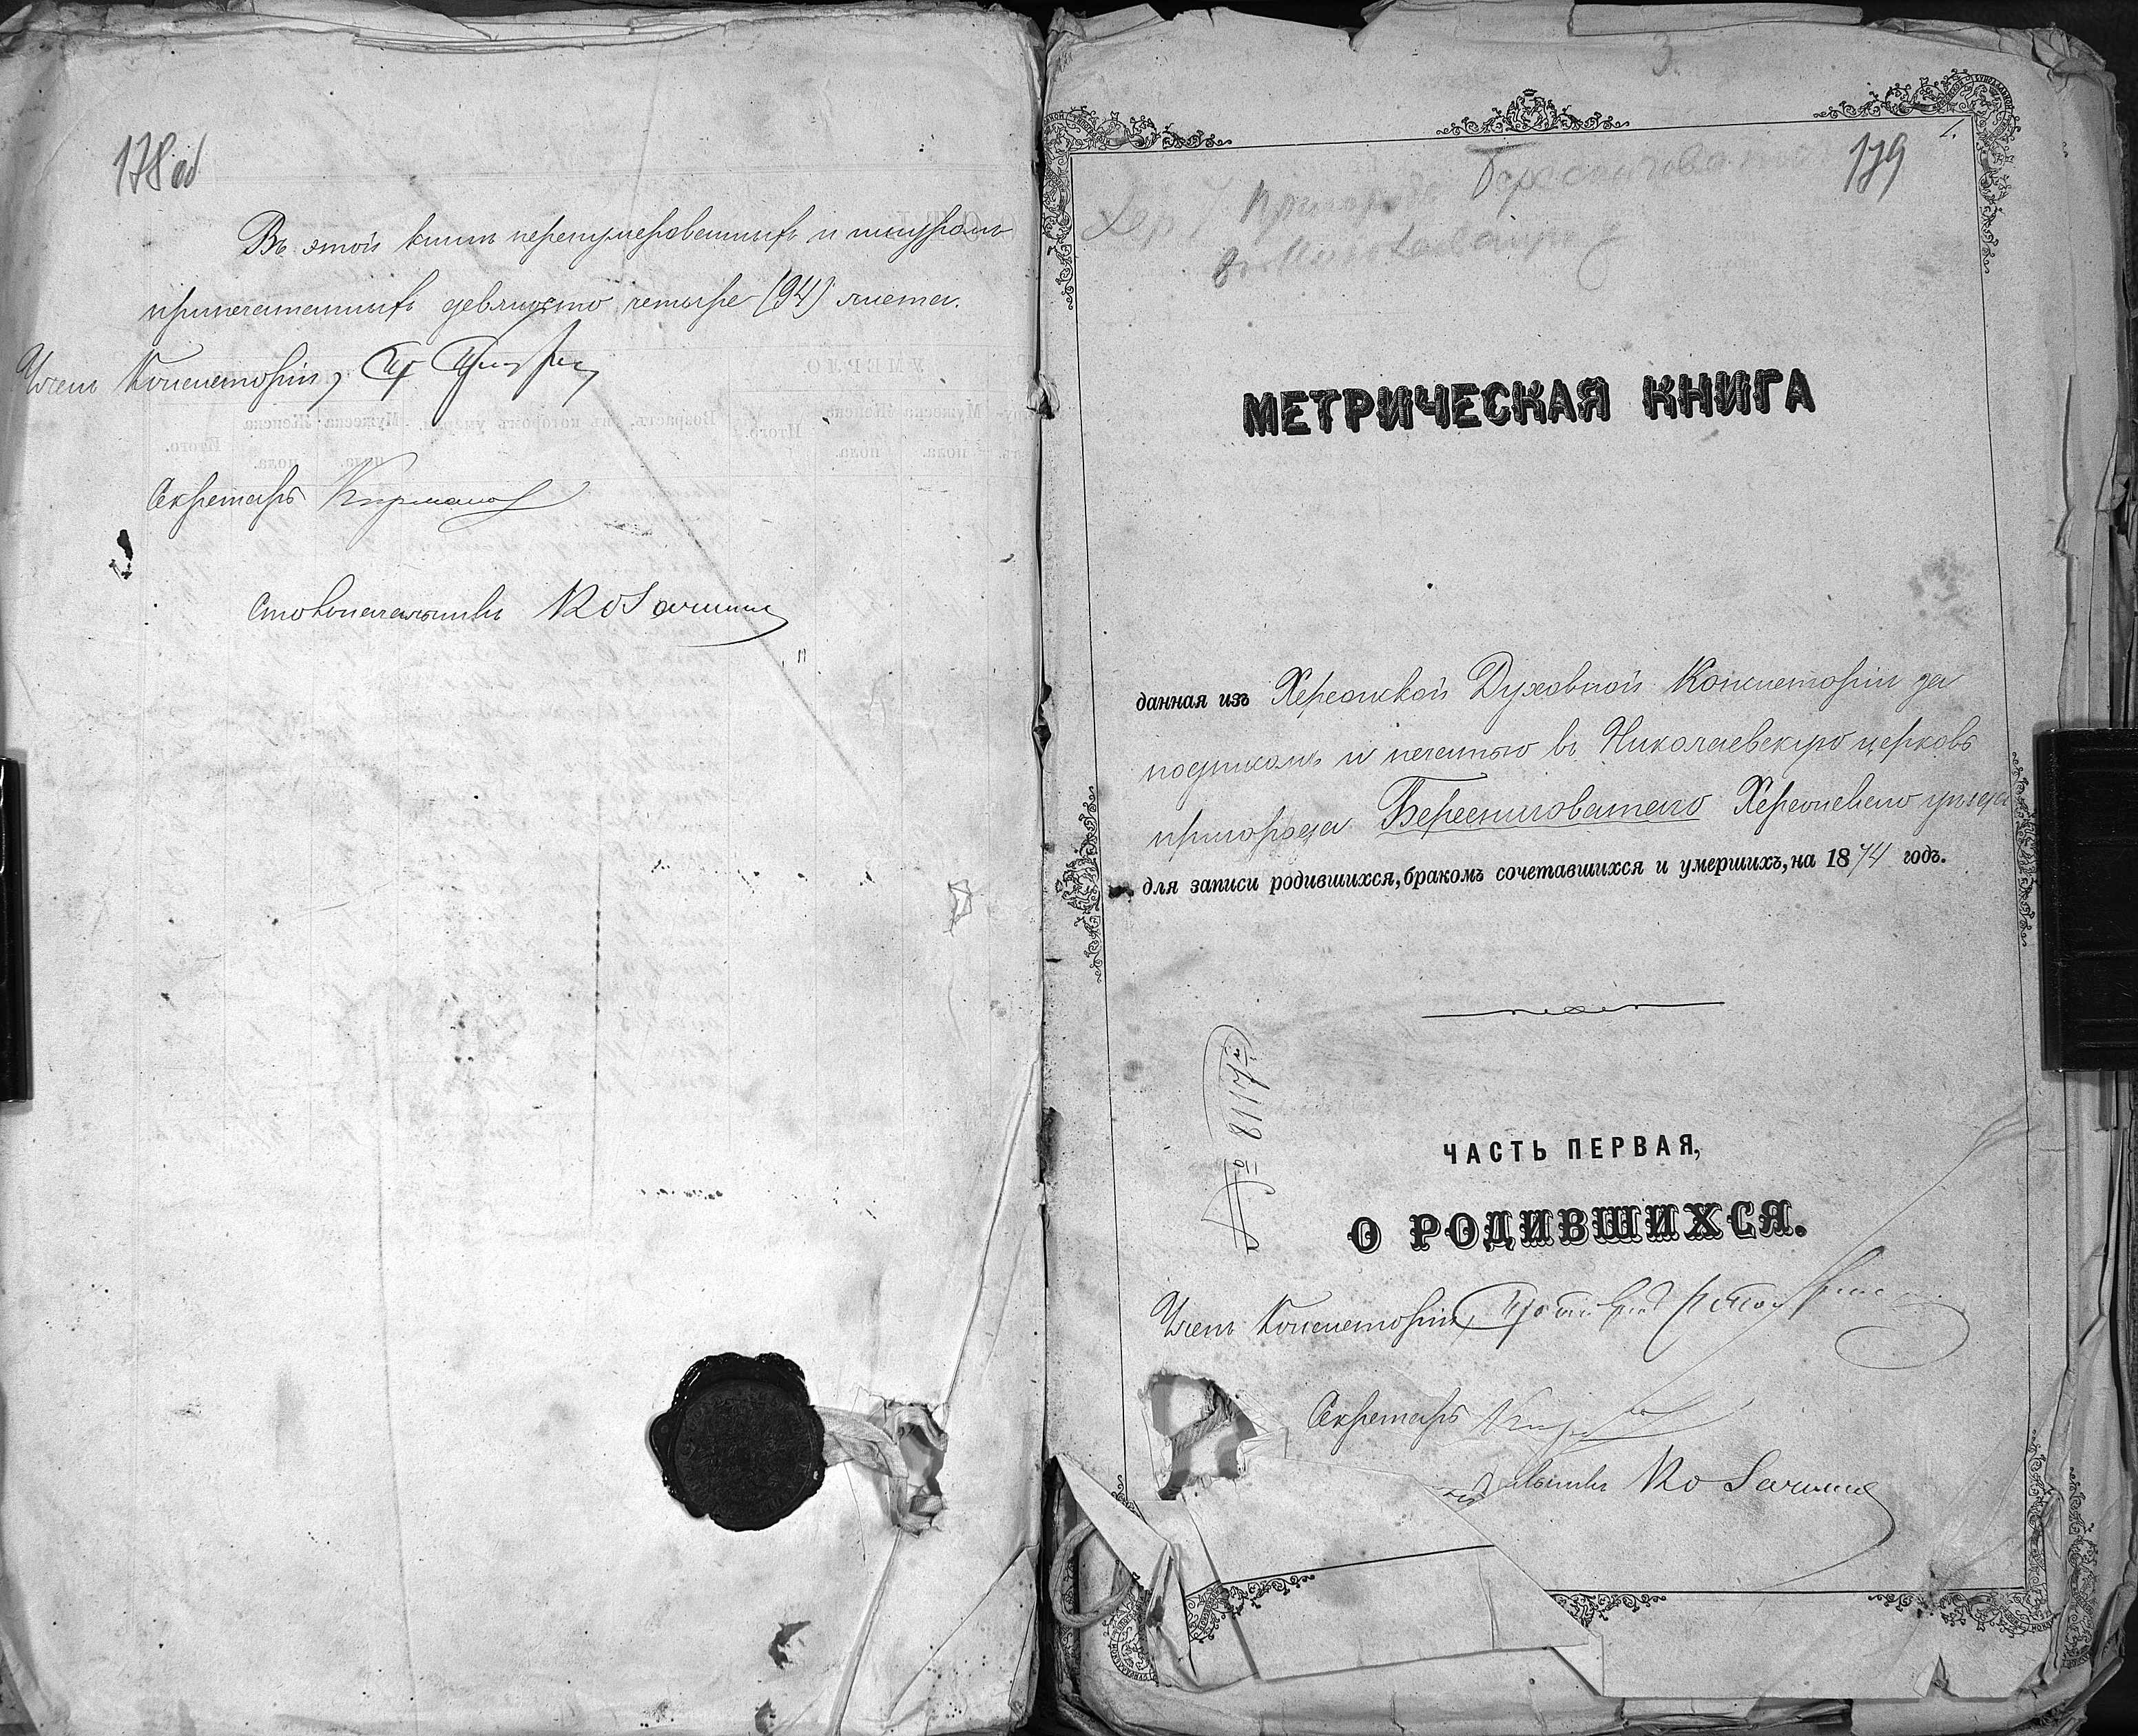 178 об
Въ этой книгѣ перенумерованныхъ и шнуромъ
припечатанныхъ девяносто четыре (94) листа.
Членъ Консисторіи,
Секретарь
Столоначальникъ
3.
179
Пригородъ Берсниговато
МЕТРИЧЕСКАЯ КНИГА
данная изъ Херсонской Духовной Консисторіи за
подписомъ и печатью въ Николаевскую церковь
пригорода Бересниговатаго Херсонскаго уѣзда
для записи родившихся, бракомъ сочетавшихся и умершихъ, на 1874 годъ.
№
ЧАСТЬ ПЕРВАЯ,
О РОДИВШИХСЯ.
Членъ Консисторіи,
Секретарь